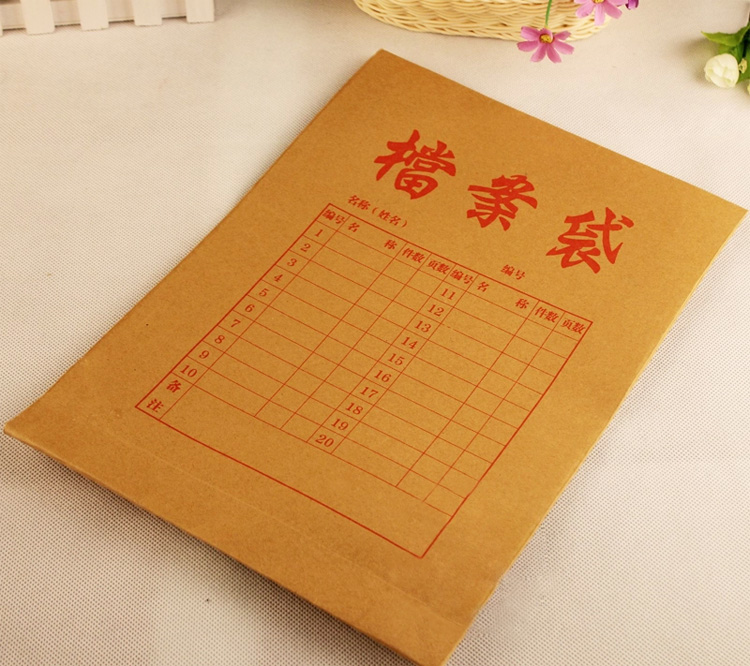 檔案袋
名称（姓名） 编号
编号 名称 件数 页数 编号 名称 件数 页数
1 11
2 12
3 13
4 14
5 15
6 16
7 17
8 18
9 19
10 20
备注